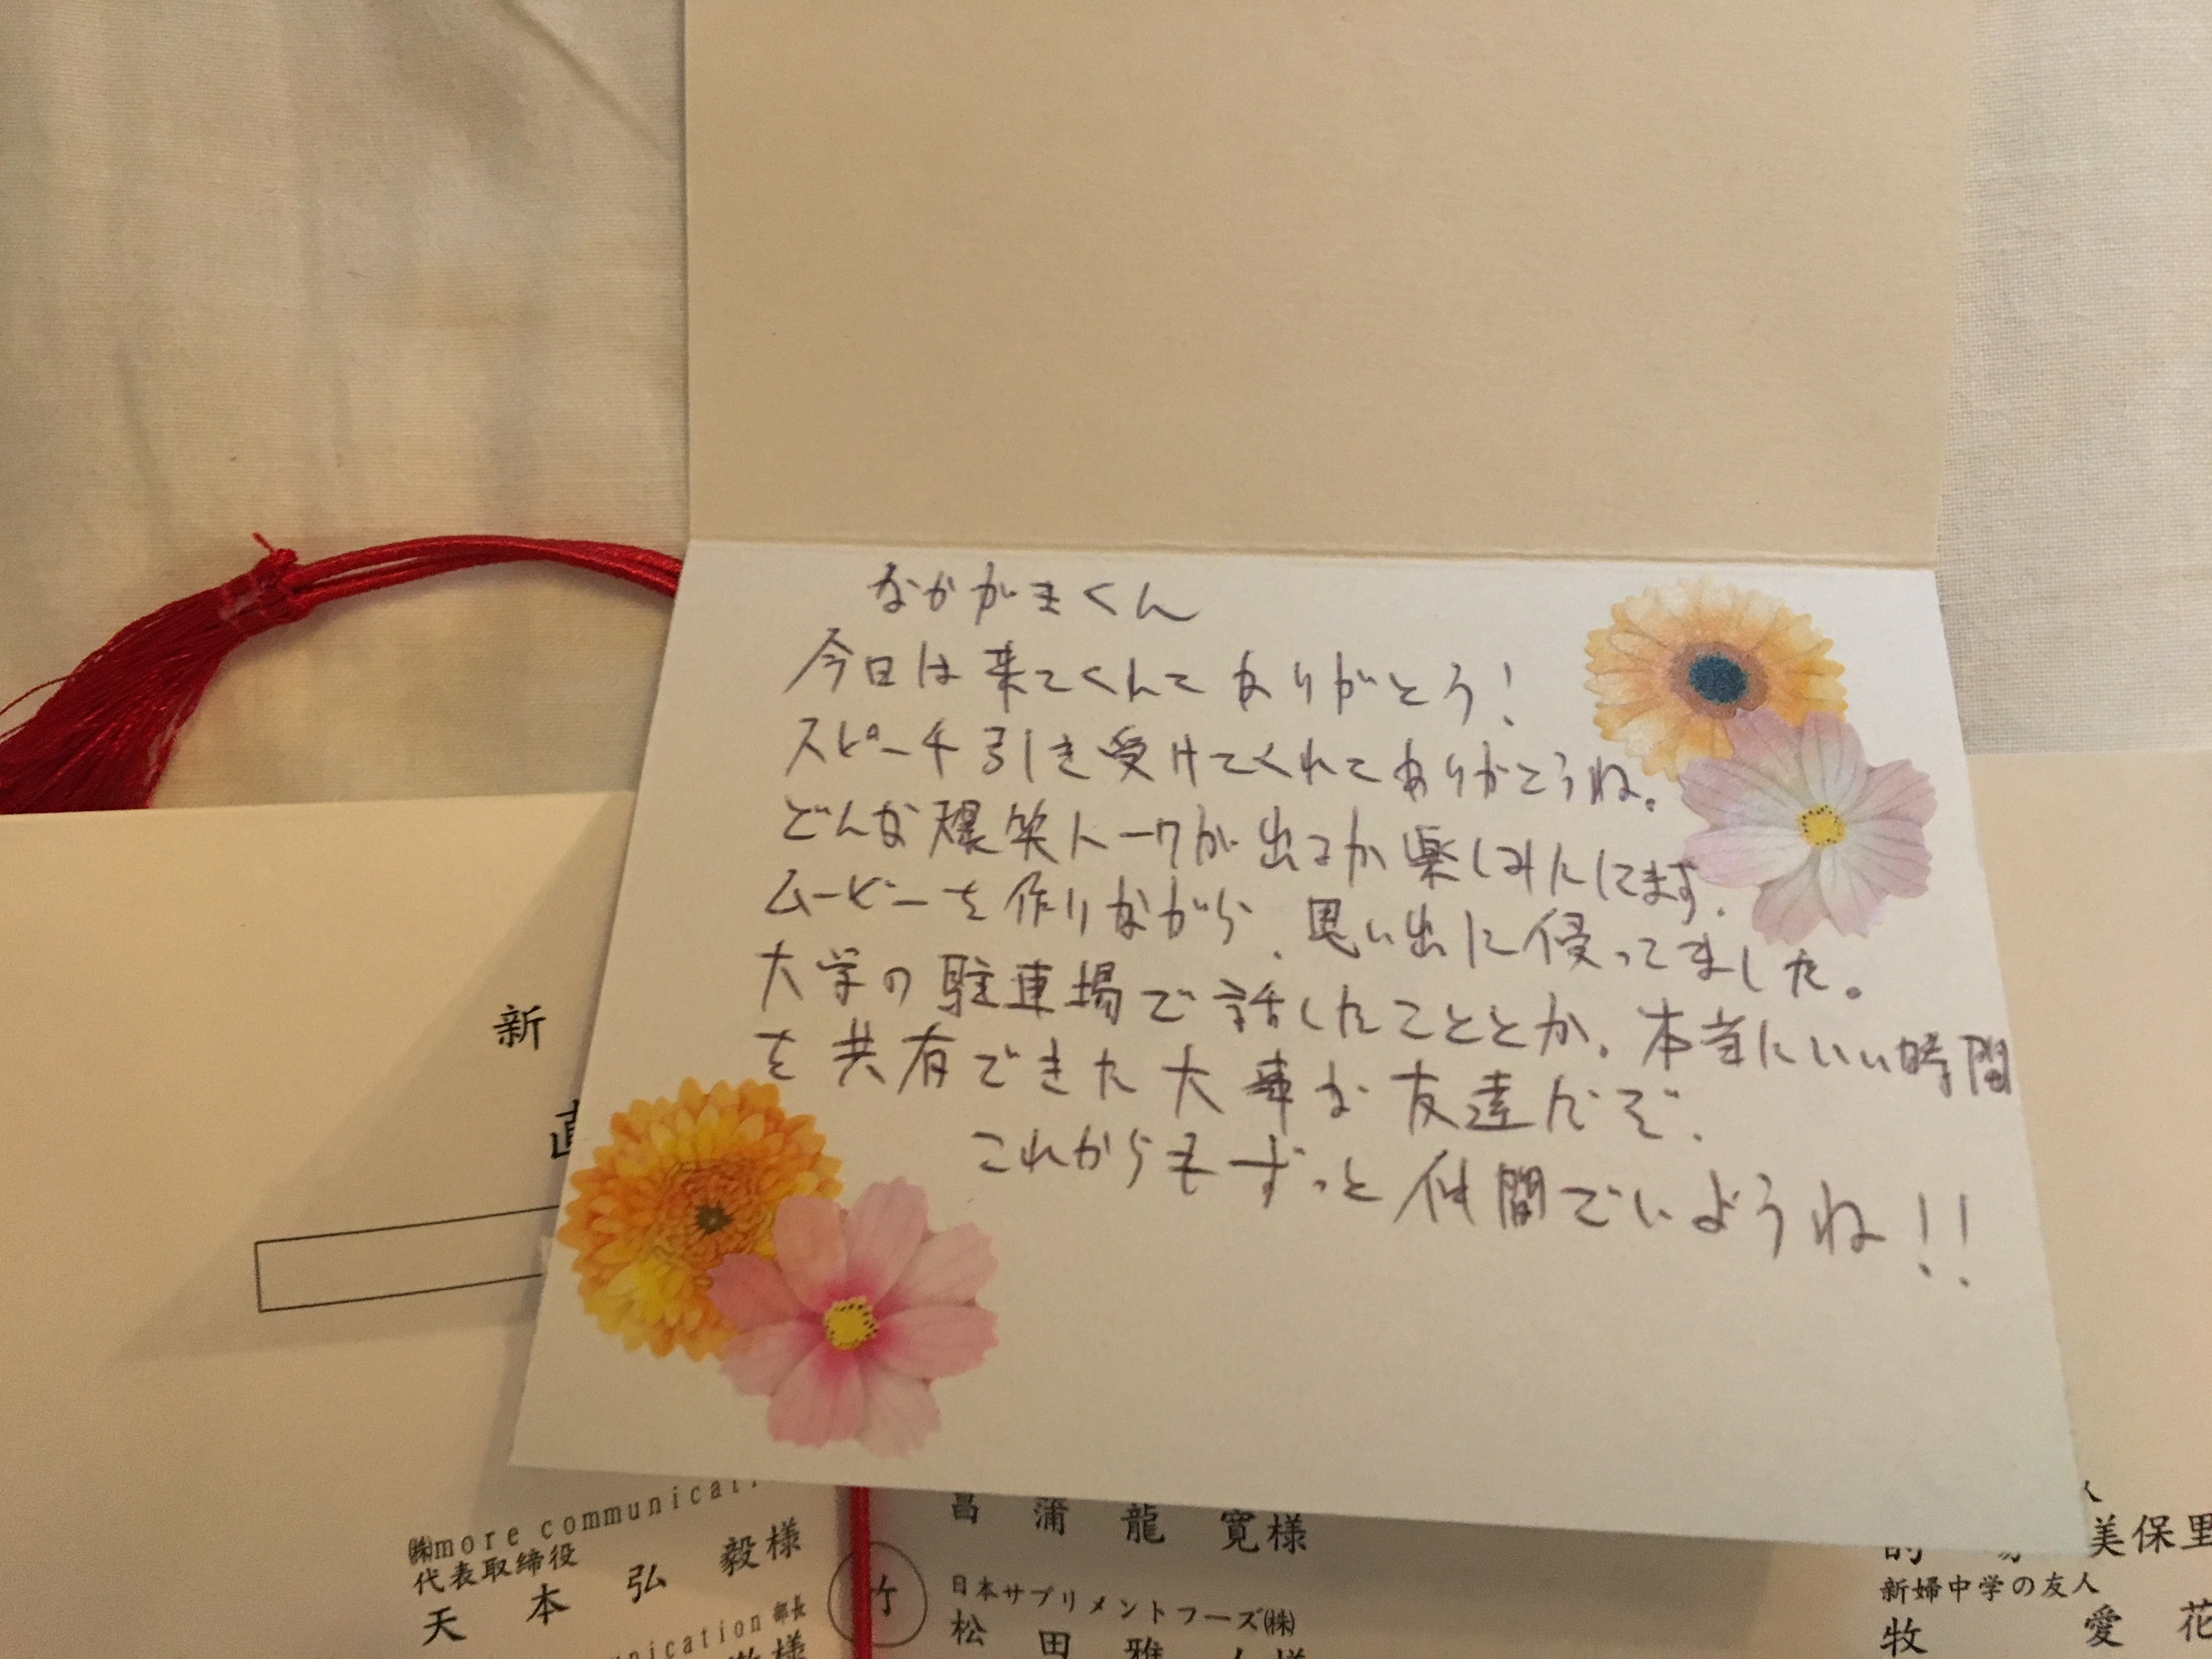 なかがきくん
今日は来てくれてありがとう!
スピーチ引き受けてくれてありがとうね。
どんな爆笑トークが出るか楽しみにしてます。
ムービーを作りながら、思い出に侵ってました。
大学の駐車場で話したこととか、本当にいい時間
を共有できた大事な友達だぞ。
これからもずっと仲間でいようね!!
新
直
㈱more communicati
代表取締役
天本弘毅様
nication 部長
様
菖蒲龍寛様
竹
日本サプリメントフーズ㈱
松田雅
人
美保里
新婦中学の友人
牧 愛花